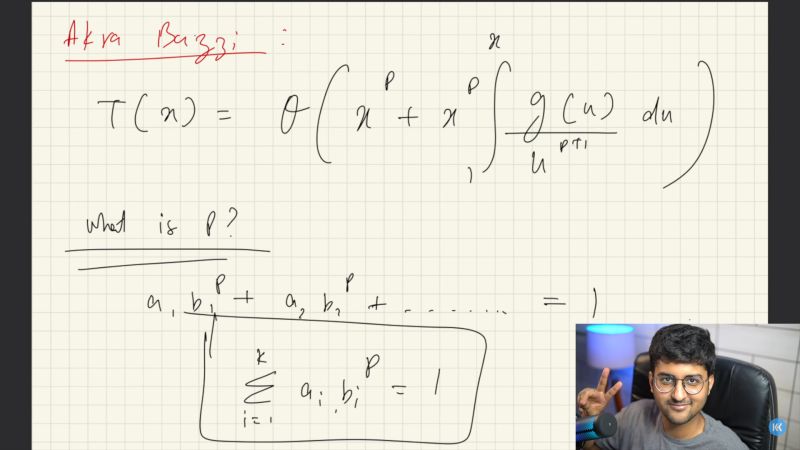 Akra Bazzi :
T(x) = θ( x^p + x^p ∫_1^x g(u)/u^{p+1} du )
What is P?
a₁ b₁^p + a₂ b₂^p + ........ = 1
∑_{i=1}^{k} aᵢ bᵢ^p = 1
K